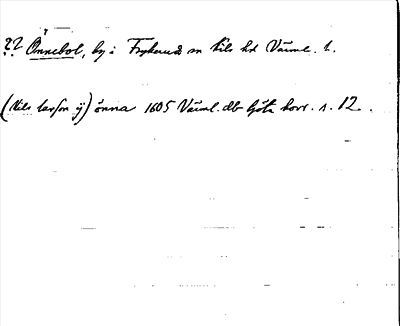 ?? Önnebol, by i Frykerud sn Kils hd Värml. l.
(Nils larson ÿ) önna 1605 Värml. db Göta hovr. s. 12.